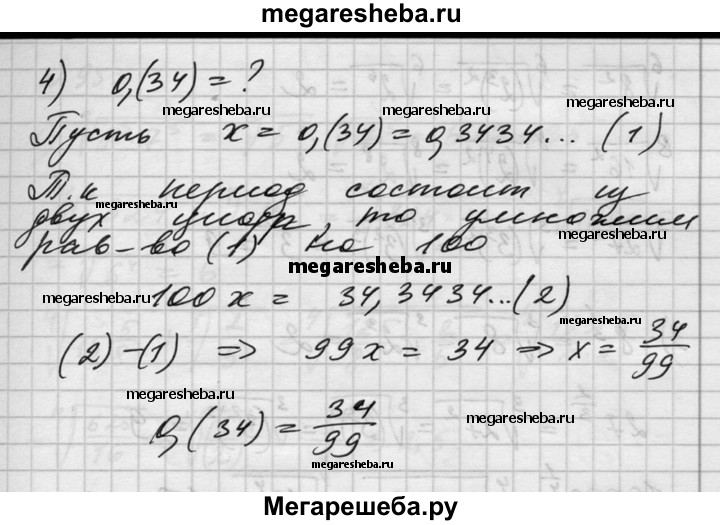 megaresheba.ru
4) 0,(34) = ?
megaresheba.ru megaresheba.ru
Пусть x = 0,(34) = 0,3434... (1)
Т.к период состоит из
megaresheba.ru
двух цифр, то умножим
megaresheba.ru
рав-во (1) на 100
megaresheba.ru
megaresheba.ru 100x = 34,3434...(2)
megaresheba.ru
(2) - (1) ⇒ 99x = 34 ⇒ x = 34/99
megaresheba.ru megaresheba.ru
0,(34) = 34/99
megaresheba.ru
megaresheba.ru
Мегарешеба.ру